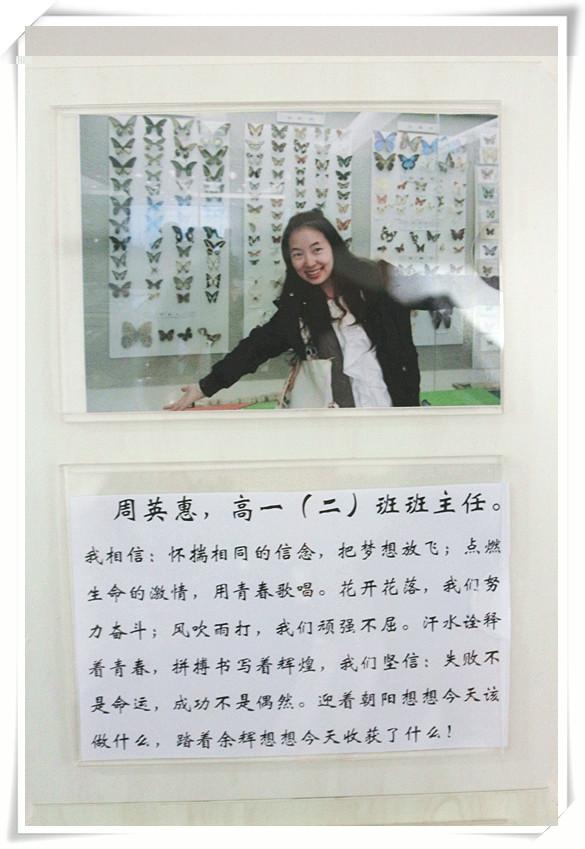 周英惠，高一（二）班班主任。
我相信：怀揣相同的信念，把梦想放飞；点燃
生命的激情，用青春歌唱。花开花落，我们努
力奋斗；风吹雨打，我们顽强不屈。汗水诠释
着青春，拼搏书写着辉煌，我们坚信：失败不
是命运，成功不是偶然。迎着朝阳想想今天该
做什么，踏着余辉想想今天收获了什么！